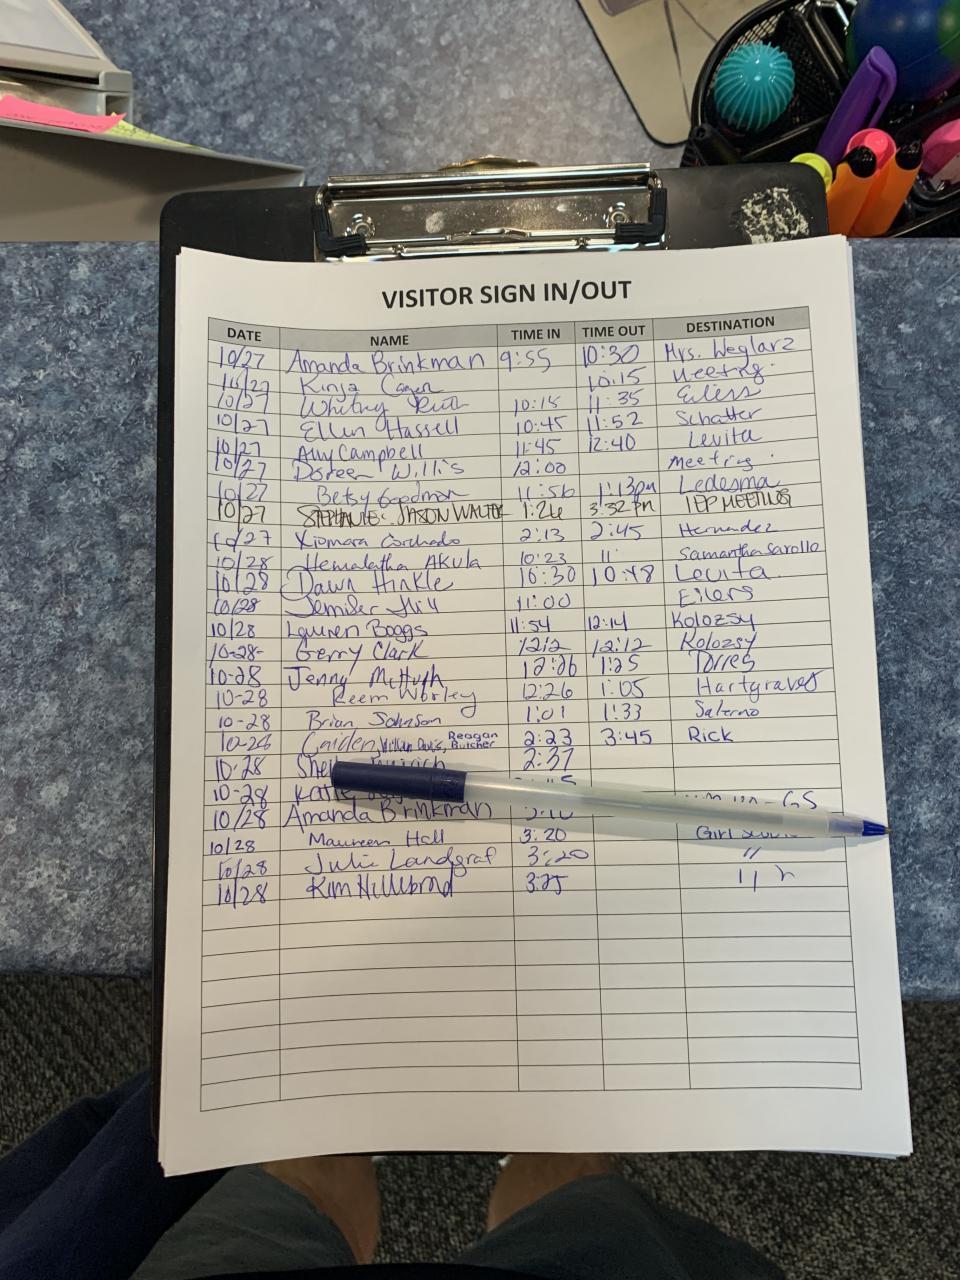 VISITOR SIGN IN/OUT
DATE NAME TIME IN TIME OUT DESTINATION
10/27 Amanda Brinkman 9:55 10:30 Mrs. Weglarz
10/27 Kinja 10:15 Meeting.
10/27 Whitney Ruth 10:15 11:35 Eilers
10/27 Ellen Hassell 10:45 11:52 Schatter
10/27 Amy Campbell 11:45 12:40 Levita
10/27 Doreen Willis 12:00 Meeting.
10/27 Betsy Goodman 11:56 1:13pm Ledesma
10/27 STEPHANIE: JASON WALTER 1:26 3:32 pm IEP MEETING
10/27 Xiomara Corchado 2:13 2:45 Hernandez
10/28 Hemalatha AKula 10:23 11: Samantha Sarollo
10/28 Dawn Hinkle 10:30 10:48 Levita
10/28 Jennifer Hill 11:00 Eilers
10/28 Lauren Boggs 11:54 12:14 Kolozsy
10-28- Gerry Clark 1212 12:12 Kolozsy
10-28 Jenny McHugh 12:26 1:25 Torres
10-28 Reem Worley 12:26 1:05 Hartgraves
10-28 Brian Johnson 1:01 1:33 Salerno
10-28 Caiden, William Davis, Reagan Butcher 2:23 3:45 Rick
10-28 2:37
10-28 Katie GS
10/28 Amanda Brinkman
10/28 Maureen Hall 3:20 Girl
10/28 Julie Landgraf 3:20 "
10/28 Kim Hillebrand 3:25 "